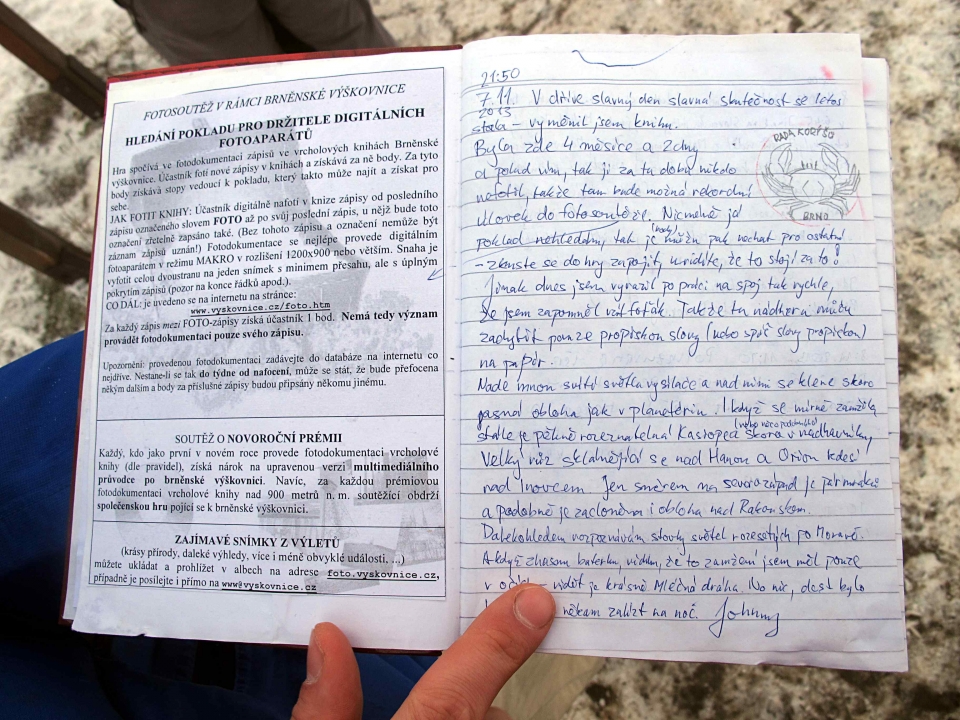 FOTOSOUTĚŽ V RÁMCI BRNĚNSKÉ VÝŠKOVNICE
HLEDÁNÍ POKLADU PRO DRŽITELE DIGITÁLNÍCH
FOTOAPARÁTŮ
Hra spočívá ve fotodokumentaci zápisů ve vrcholových knihách Brněnské
výškovnice. Účastník fotí nové zápisy v knihách a získává za ně body. Za tyto
body získává stopy vedoucí k pokladu, který takto může najít a získat pro
sebe.
JAK FOTIT KNIHU: Účastník digitálně nafotí v knize zápisy od posledního
zápisu označeného slovem FOTO až po svůj poslední zápis, u nějž bude toto
označení zřetelně zapsáno také. (Bez tohoto zápisu a označení nemůže být
záznam zápisů uznán!) Fotodokumentace se nejlépe provede digitálním
fotoaparátem v režimu MAKRO v rozlišení 1200x900 nebo větším. Snaha je
vyfotit celou dvoustranu na jeden snímek s minimem přesahu, ale s úplným
pokrytím zápisů (pozor na konce řádků apod.).
CO DÁL: je uvedeno se na internetu na stránce:
www.vyskovnice.cz/foto.htm
Za každý zápis mezi FOTO-zápisy získá účastník 1 bod. Nemá tedy význam
provádět fotodokumentaci pouze svého zápisu.
Upozornění: provedenou fotodokumentaci zadávejte do databáze na internetu co
nejdříve. Nestane-li se tak do týdne od nafocení, může se stát, že bude přefocena
někým dalším a body za příslušné zápisy budou připsány někomu jinému.
SOUTĚŽ O NOVOROČNÍ PRÉMII
Každý, kdo jako první v novém roce provede fotodokumentaci vrcholové
knihy (dle pravidel), získá nárok na upravenou verzi multimediálního
průvodce po brněnské výškovnici. Navíc, za každou prémiovou
fotodokumentaci vrcholové knihy nad 900 metrů n. m. soutěžící obdrží
společenskou hru pojící se k brněnské výškovnici.
ZAJÍMAVÉ SNÍMKY Z VÝLETŮ
(krásy přírody, daleké výhledy, více i méně obvyklé události, ...)
můžete ukládat a prohlížet v albech na adrese foto.vyskovnice.cz,
případně je posílejte i přímo na www@vyskovnice.cz
21:50
7.11. V dříve slavný den slavná skutečnost se letos
2013
stala – vyměnil jsem knihu.
Byla zde 4 měsíce a 2 dny
a pokud vím, tak ji za tu dobu nikdo
nefotil, takže tam bude možná rekordní
úlovek do fotosoutěže. Nicméně já
poklad nehledám, tak je (body) můžu pak nechat pro ostatní
– zkuste se do hry zapojit, uvidíte, že to stojí za to!
Jinak dnes jsem vyrazil po práci na spoj tak rychle,
že jsem zapomněl vzít foťák. Takže tu nádheru můžu
zachytit pouze propiskou slovy (nebo spíš slovy propiskou)
na papír.
Nade mnou svítí světla vysílače a nad nimi se klene skoro
jasná obloha jak v planetáriu. I když se mírně zamžila,
stále je pěkně rozeznatelná Kasiopea (nebo něco podobného) skoro v nadhlavníku,
Velký vůz sklánějící se nad Hanou a Orion kdesi
nad Inovcem. Jen směrem na severozápad je pár mraků
a podobně je zacloněna i obloha nad Rakouskem.
Dalekohledem rozpoznávám stovky světel rozesetých po Moravě.
A když zhasnu baterku, vidím, že to zamžení jsem měl pouze
v – vidět je krásně Mléčná dráha. No nic, dost bylo
někam zalézt na noc. Johnny
RADA KORÝŠŮ
BRNO